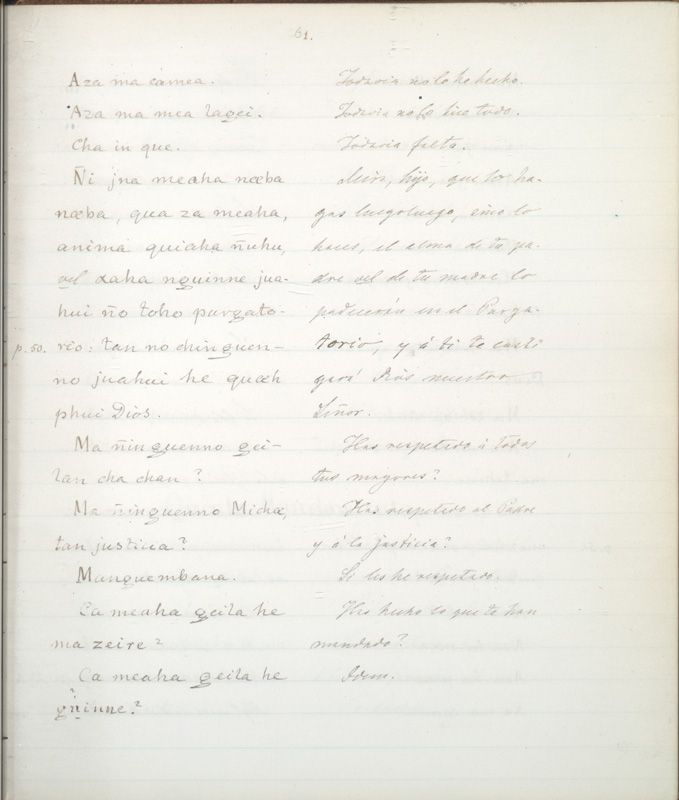 61.
Aza ma camea. Todavia no lo he hecho.
Aza ma mea lagei. Todavia no lo hice todo.
Cha in que. Todavia falta.
Ñi jna meaha næba Mira, hijo, que lo ha-
næba, qua za meaha, gas luegoluego, sino lo
anima quiaha ñuhu, haces, el alma de tu pa-
vel xaha nguinne jua- dre vel de tu madre lo
hui ño toho purgato- padecerán en el Purga-
p. 50. rio: tan no chinguen- torio, y á ti te casti
no juahui he quæh gará Dios nuestro
phui Dios. Señor.
Ma ñinguenno gei- Has respetado á todos
lan cha chan? tus mayores?
Ma ñinguenno Michæ, Has respetado al Padre
tan justicia? y á la justicia?
Manguembana. Si les he respetado.
Ca meaha geila he Has hecho lo que te han
ma zeire? mandado?
Ca meaha geila he Idem.
guinne?